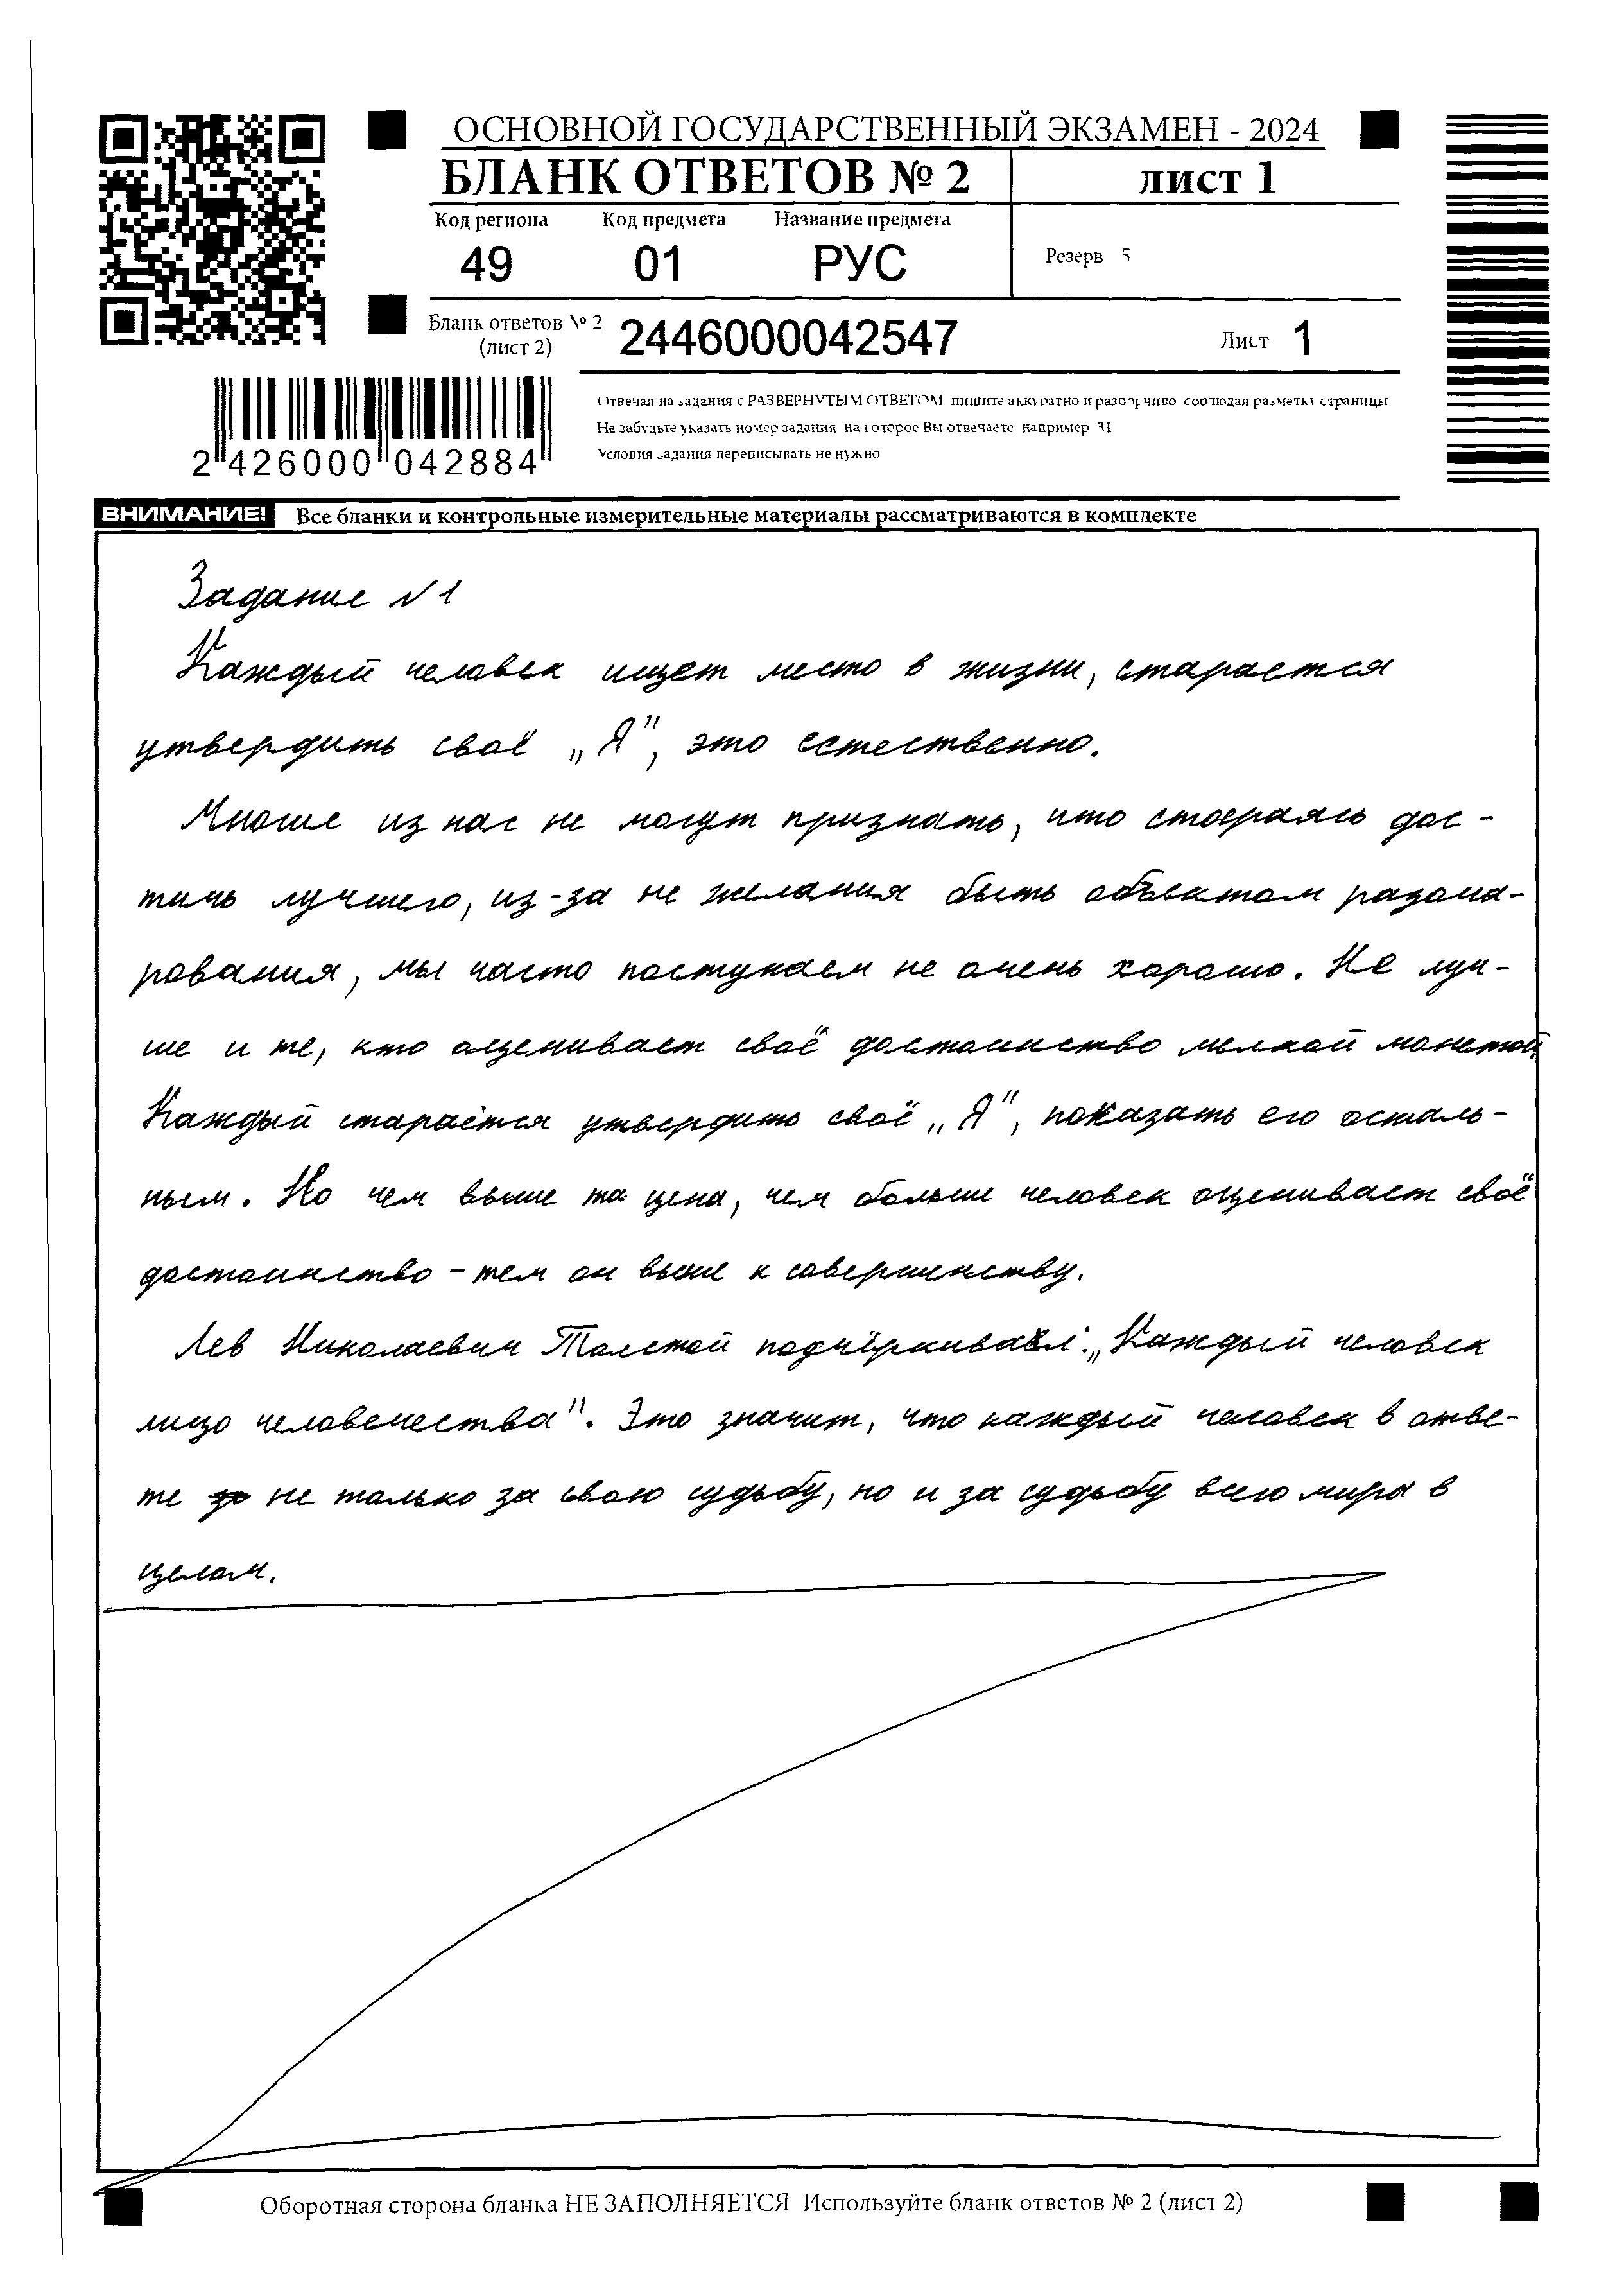 ОСНОВНОЙ ГОСУДАРСТВЕННЫЙ ЭКЗАМЕН - 2024
БЛАНК ОТВЕТОВ № 2 лист 1
Код региона Код предмета Название предмета
49 01 РУС
Резерв 5
Бланк ответов № 2 (лист 2) 2446000042547 Лист 1
Отвечая на задания с РАЗВЕРНУТЫМ ОТВЕТОМ пишите аккуратно и разборчиво соблюдая разметку страницы
Не забудьте указать номер задания на которое Вы отвечаете например 31
Условия задания переписывать не нужно
2 426000 042884
ВНИМАНИЕ! Все бланки и контрольные измерительные материалы рассматриваются в комплекте
Задание №1
Каждый человек ищет место в жизни, старается
утвердить своё „Я", это естественно.
Многие из нас не могут признать, что стараясь дос-
тичь лучшего, из-за не желания быть объектом разоча-
рования, мы часто поступаем не очень хорошо. Не луч-
ше и те, кто оценивает своё достоинство мелкой монетой
Каждый старается утвердить своё „Я", показать его осталь-
ным. Но чем выше та цена, чем больше человек оценивает своё
достоинство - тем он выше к совершенству.
Лев Николаевич Толстой подчёркивал: „Каждый человек
лицо человечества". Это значит, что каждый человек в отве-
те не только за свою судьбу, но и за судьбу всего мира в
целом.
Оборотная сторона бланка НЕ ЗАПОЛНЯЕТСЯ Используйте бланк ответов № 2 (лист 2)